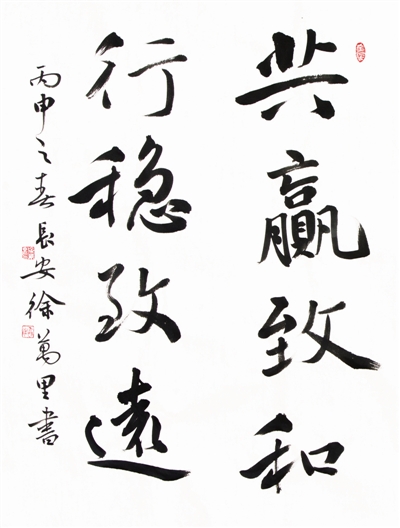 共赢致和
行稳致遠
丙申之春長安徐萬里書